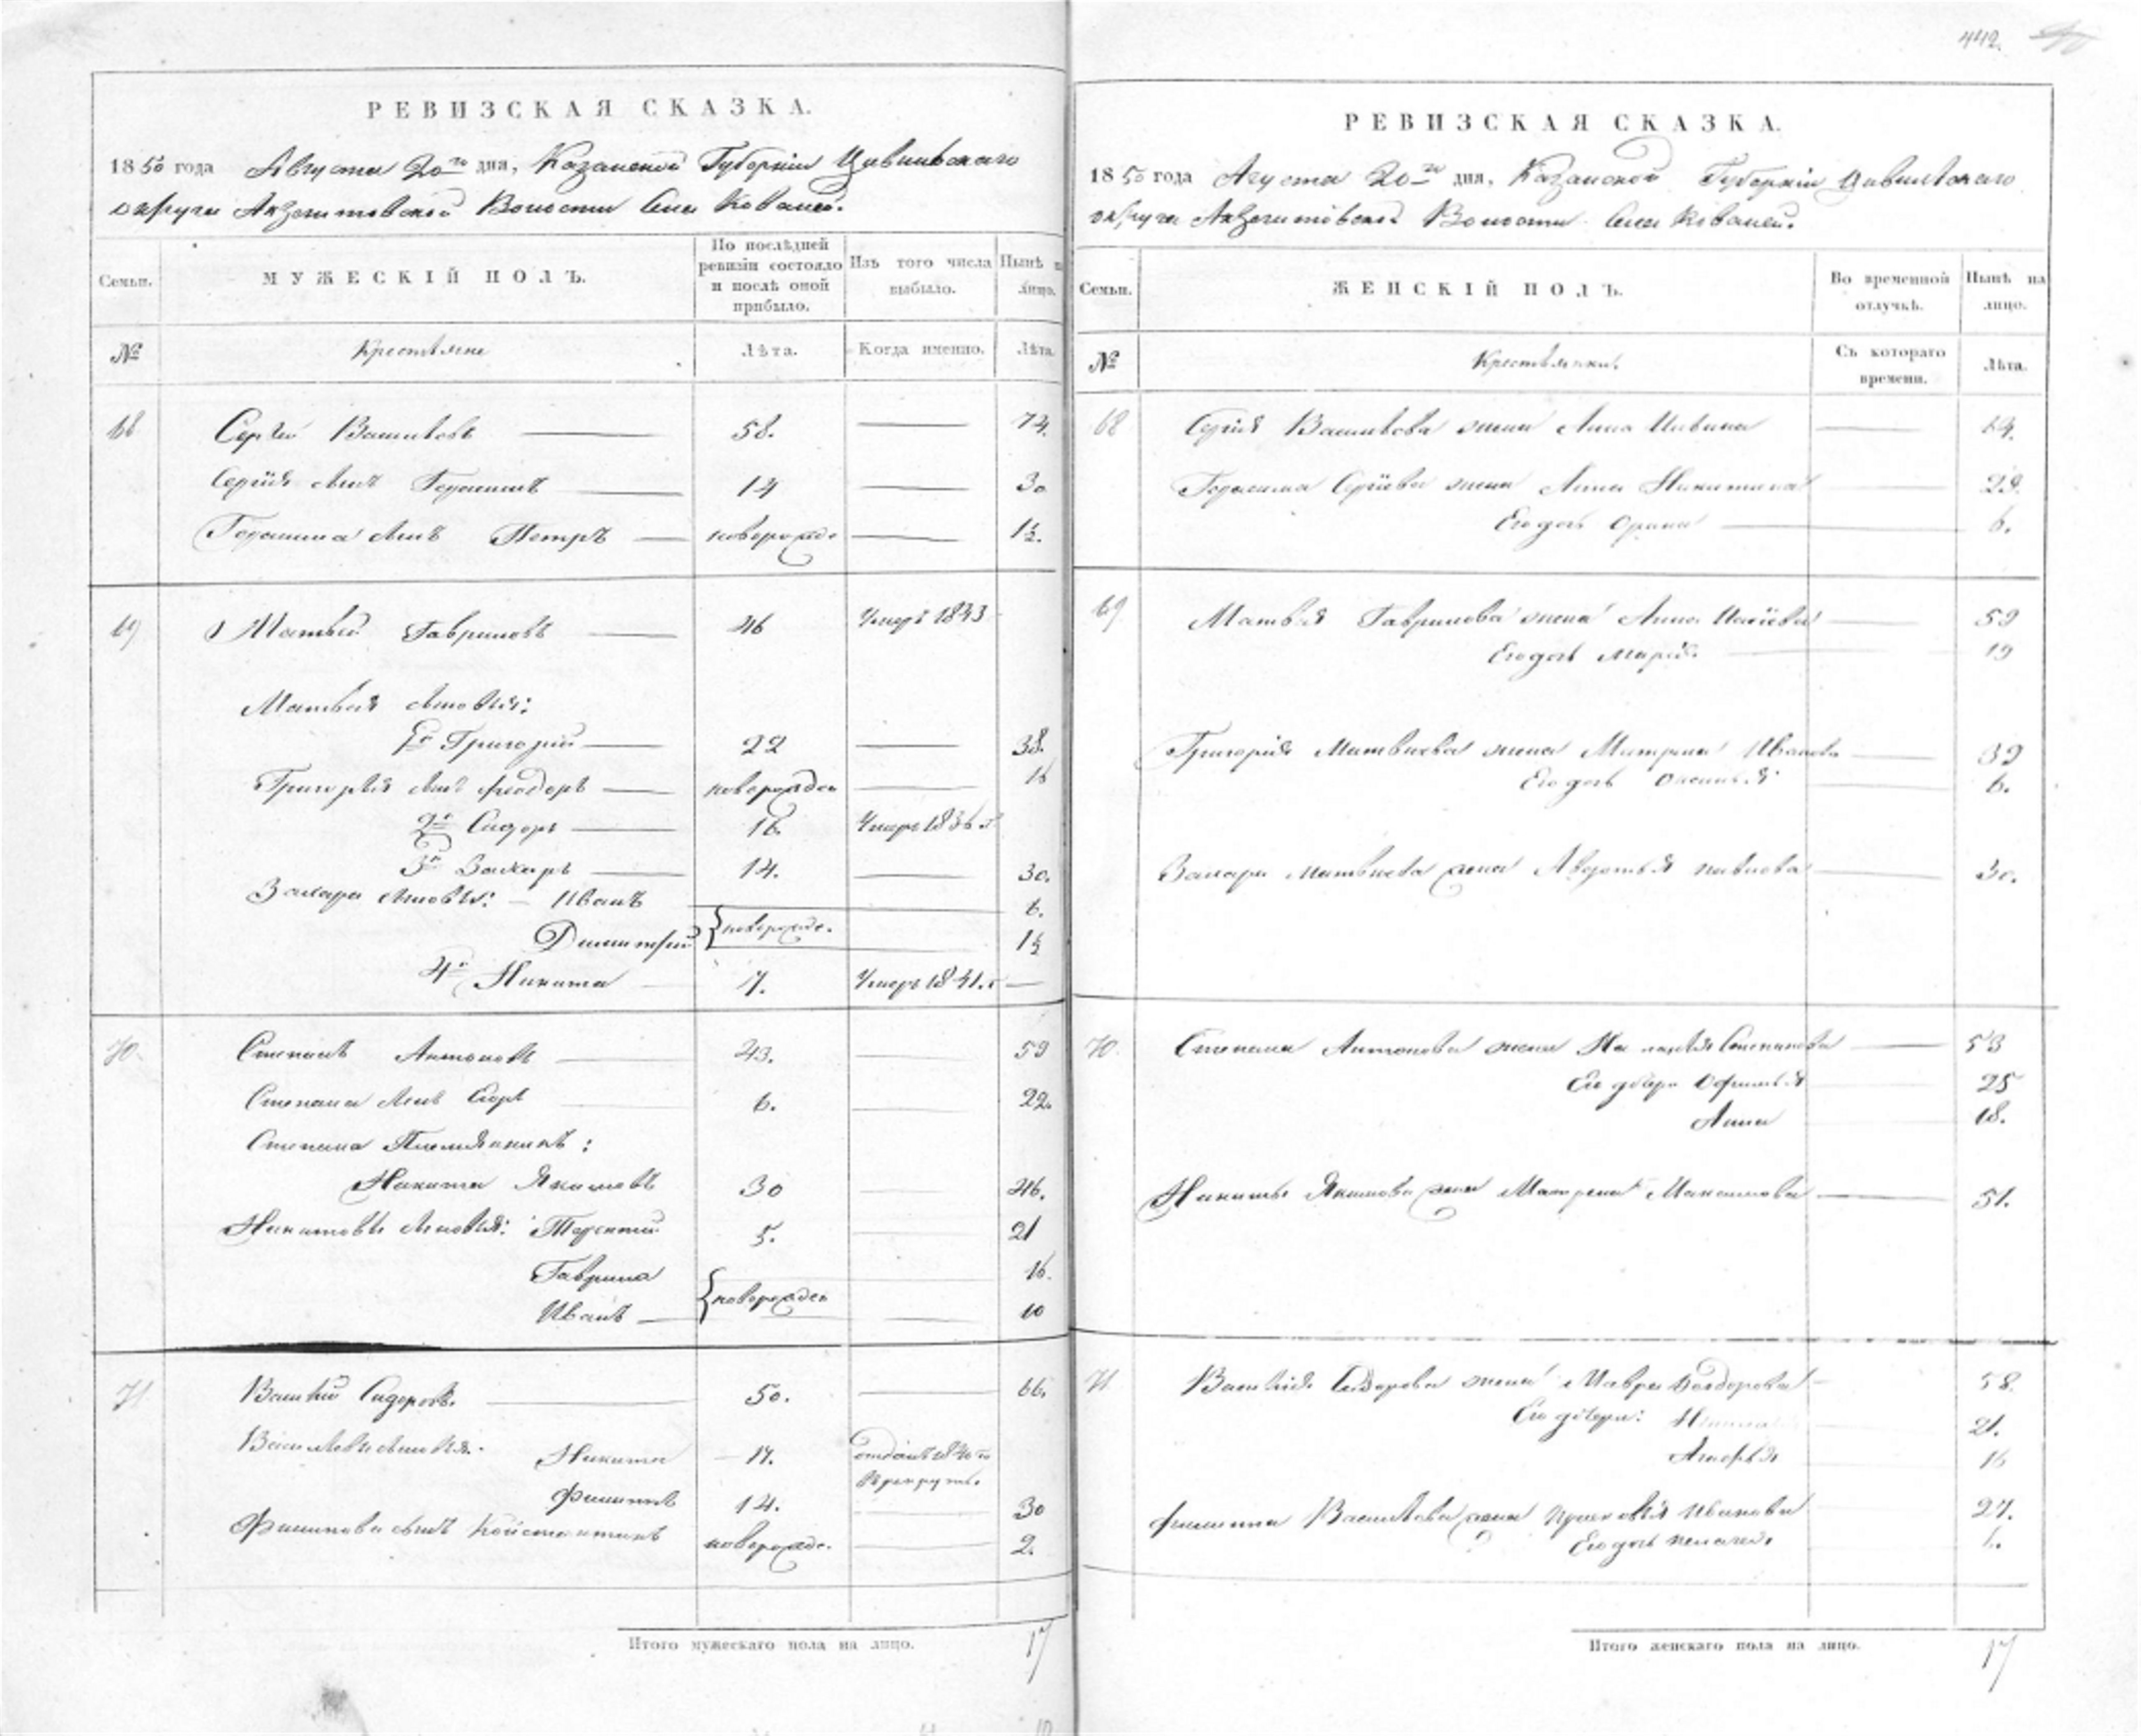 442.
РЕВИЗСКАЯ СКАЗКА.
1850 года Августа 20го дня, Казанской Губерніи Цивильскаго
округи Акзегитовской Волости Села Ковалей.
Семьи.
МУЖЕСКІЙ ПОЛЪ.
По послѣдней ревизіи состояло и послѣ оной прибыло.
Изъ того числа выбыло.
Нынѣ на лицо.
№
Крестьяне
Лѣта.
Когда именно.
Лѣта
68 Сергей Васильевъ 58. 74.
Сергія сынъ Герасимъ 14 30
Герасима сынъ Петръ новорожд. 1½.
69 Матвей Гавриловъ 46 Умеръ 1843
Матвея сыновья:
1й Григорій 22 38.
Григорья сынъ Феодоръ новорожден 16
2й Сидоръ 16. Умеръ 1836 г
3й Захаръ 14. 30.
Захара сыновья: Иванъ 6.
Димитрий {новорожд. 1½
4й Никита 7. Умеръ 1841. г
70. Степанъ Антоновъ 43. 59
Степана сынъ Егоръ 6. 22.
Степана Племянникъ:
Никита Якимовъ 30 46.
Никиты сыновья: Терентий 5. 21
Гаврила 16.
Иванъ {новорожден 10
71 Василий Сидоровъ. 50. 66.
Василья сыновья: Никита 17. отданъ 1840 го
в рекруты.
Филиппъ 14. 30
Филиппова сынъ Константинъ новорожд. 2.
Итого мужескаго пола на лицо. 17
РЕВИЗСКАЯ СКАЗКА.
1850 года Агуста 20го дня, Казанской Губерніи Цивильскаго
округи Акзегитовской Волости Села Ковалей.
Семьи.
ЖЕНСКІЙ ПОЛЪ.
Во временной отлучкѣ.
Нынѣ на лицо.
№
Крестьянки.
Съ котораго времени.
Лѣта.
68 Сергія Васильева жена Анна 64.
Герасима Сергіева жена Анна Никитина 29.
Его дочь Орина 6.
69 Матвѣя Гаврилова жена Анна 59
Его дочь Марія 19
Григорія Матвѣева жена Матрена Иванова 39
Его дочь 6.
Захара Матвѣева жена Авдотья 30.
70. Степана Антонова жена Степанова 53
Его дочери Офимья 25
Анна 18.
Никиты Якимова жена Матрена Максимова 51.
71 Василія Сидорова жена Мавра Феодорова 58.
Его дочери: 21.
16
Филиппа Васильева жена Прасковья Иванова 27.
Его дочь Пелагея.
Итого женскаго пола на лицо. 17